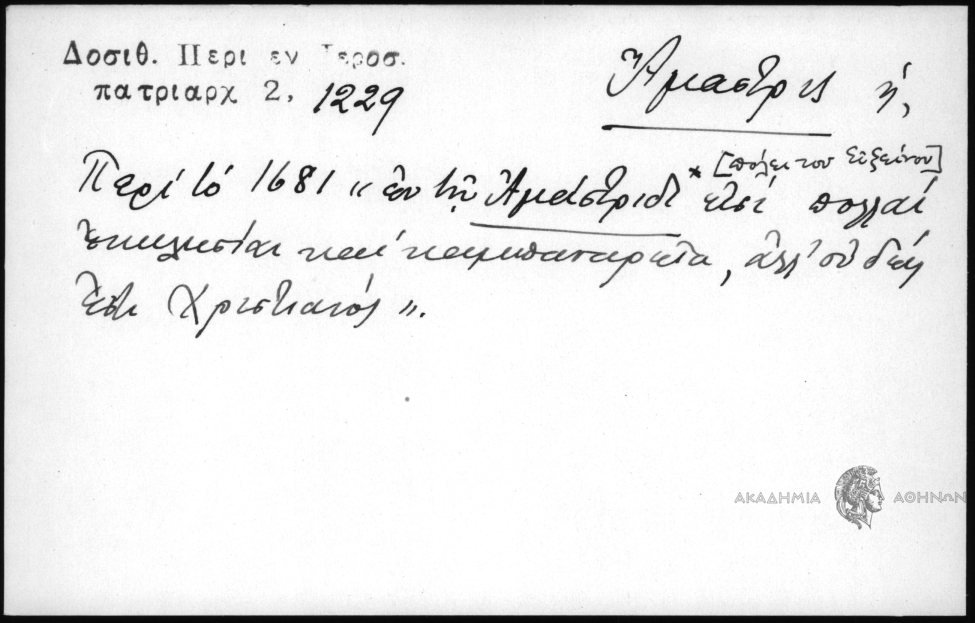 Δοσιθ. Περι εν Ιεροσ.
πατριαρχ 2, 1229
Ἄμαστρις ἡ,
Περί τό 1681 «ἐν τῇ Ἀμάστριδι * [πόλει του Εὐξείνου] εἰσί πολλαί
ἐκκλησίαι καί καμπαναρεῖα, ἀλλ' οὐδείς
ἐστι Χριστιανός».
ΑΚΑΔΗΜΙΑ ΑΘΗΝΩΝ